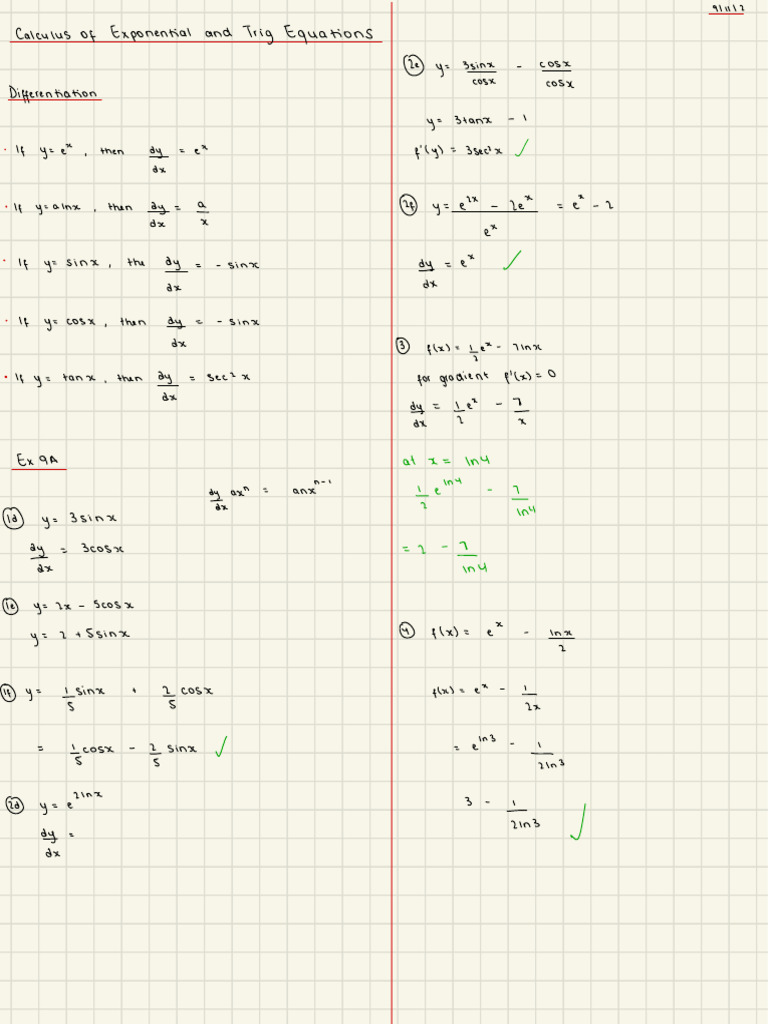 9/11/17
Calculus of Exponential and Trig Equations
Differentiation
· If y=eˣ, then dy/dx = eˣ
· If y=alnx, then dy/dx = a/x
· If y= sinx, the dy/dx = - sinx
· If y= cosx, then dy/dx = - sinx
· If y= tanx, then dy/dx = sec²x
Ex 9A
dy/dx axⁿ = anxⁿ⁻¹
1d y= 3sinx
dy/dx = 3cosx
1e y= 2x - 5cosx
y= 2 + 5sinx
1f y= 1/5 sinx + 2/5 cosx
= 1/5 cosx - 2/5 sinx ✓
2d y= e^(2lnx)
dy/dx =
2e y= 3sinx/cosx - cosx/cosx
y= 3tanx - 1
f'(y) = 3sec²x ✓
2f y= (e²ˣ - 2eˣ)/eˣ = eˣ - 2
dy/dx = eˣ ✓
3 f(x) = 1/2 eˣ - 7lnx
for gradient f'(x) = 0
dy/dx = 1/2 eˣ - 7/x
at x = ln4
1/2 e^(ln4) - 7/ln4
= 2 - 7/ln4
4 f(x) = eˣ - lnx/2
f(x) = eˣ - 1/2x
= e^(ln3) - 1/2ln3
3 - 1/2ln3 ✓